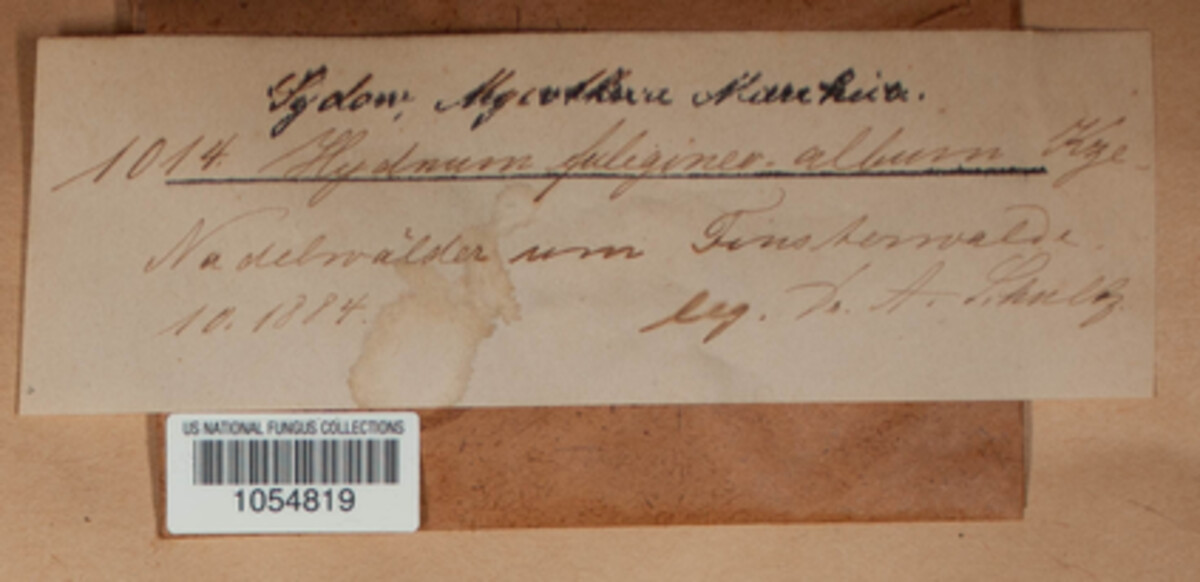 Sydow, Mycotheca Marchica.
1014. Hydnum fuligineo-album Kze.
Nadelwälder um Finsterwalde.
10. 1884. leg. Dr. A. Schultz.
US NATIONAL FUNGUS COLLECTIONS
1054819